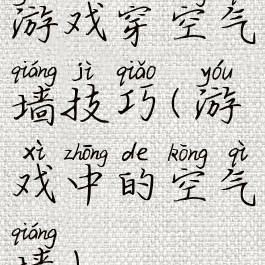 游戏穿空气
qiáng jì qiǎo yóu
墙技巧(游
xì zhōng de kōng qì
戏中的空气
qiáng